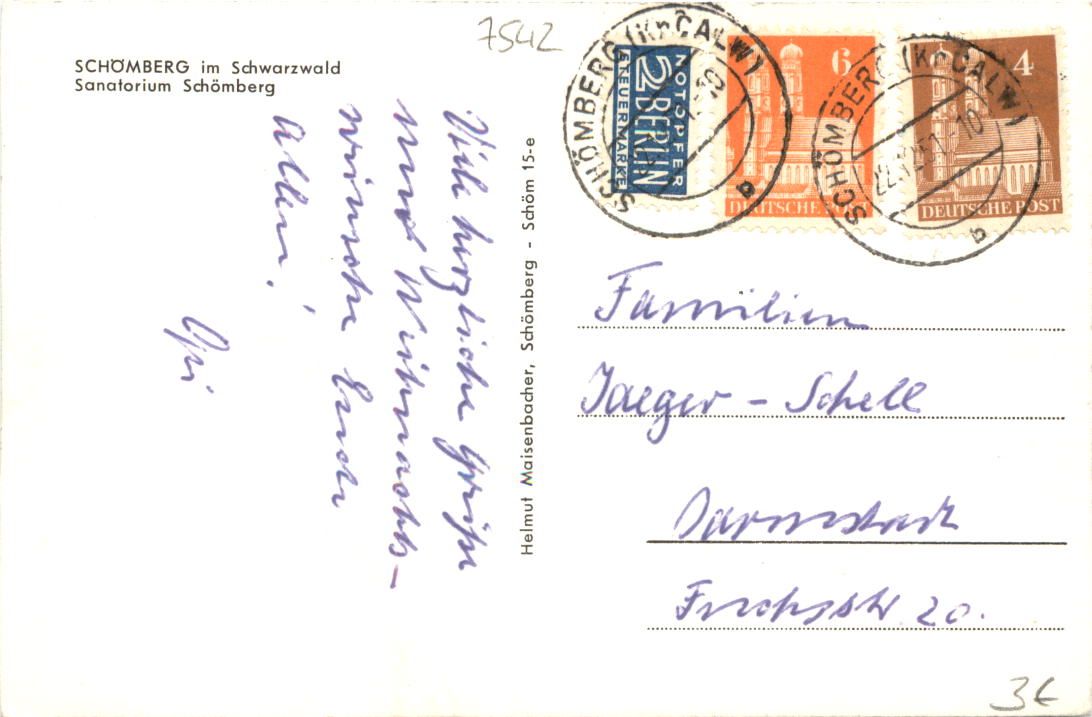 7542
SCHÖMBERG im Schwarzwald
Sanatorium Schömberg
Viele herzliche Grüße
und Weihnachts-
wünsche Euch
Allen!
Opi
Helmut Maisenbacher, Schömberg - Schöm 15-e
NOTOPFER
2 BERLIN
STEUERMARKE
6
DEUTSCHE POST
4
DEUTSCHE POST
SCHÖMBERG (Kr. CALW)
b
SCHÖMBERG (Kr. CALW)
22.12.51.-10
b
Familien
Jaeger - Schell
Darmstadt
20.
3€